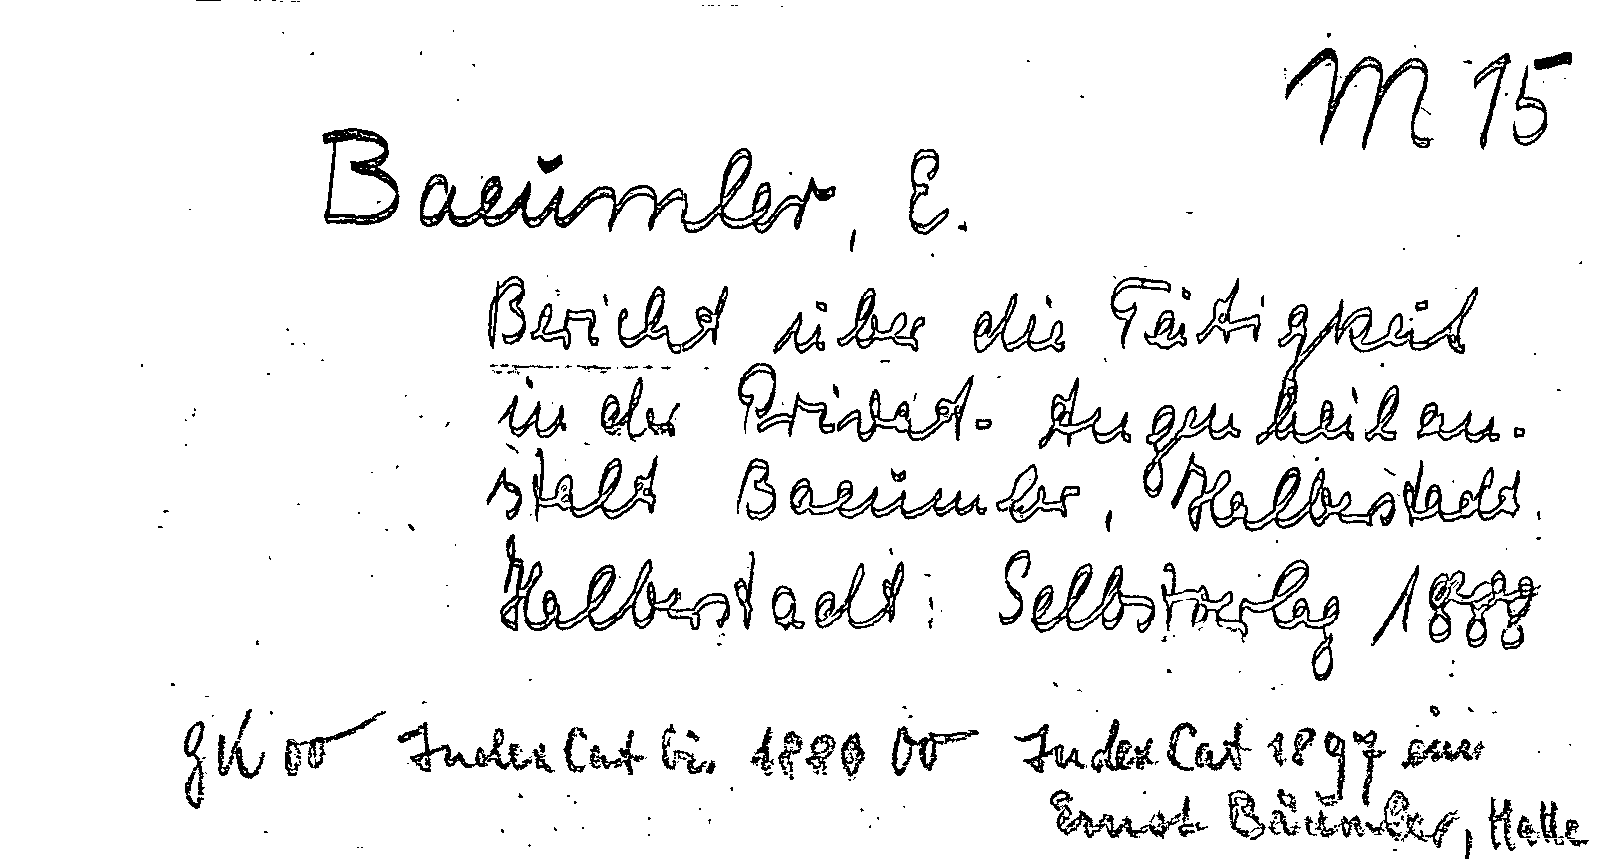 M 15
Baeumler, E.
Bericht über die Tätigkeit
in der Privat-Augenheilan-
stalt Baeumler, Halberstadt.
Halberstadt: Selbstverlag 1888
GK 00 Index Cat bis 1880 00 Index Cat 1897 ein
Ernst Bäumler, Halle